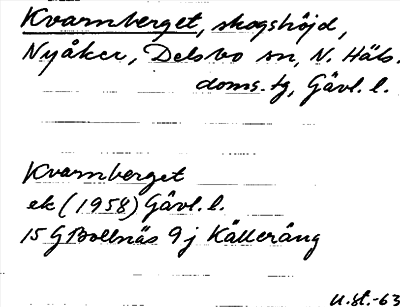 Kvarnberget, skogshöjd,
Nyåker, Delsbo sn, N. Häls.
doms.tg, Gävl. l.
Kvarnberget
ek (1958) Gävl. l.
15 G Bollnäs 9 j Källeräng
U.st.-63